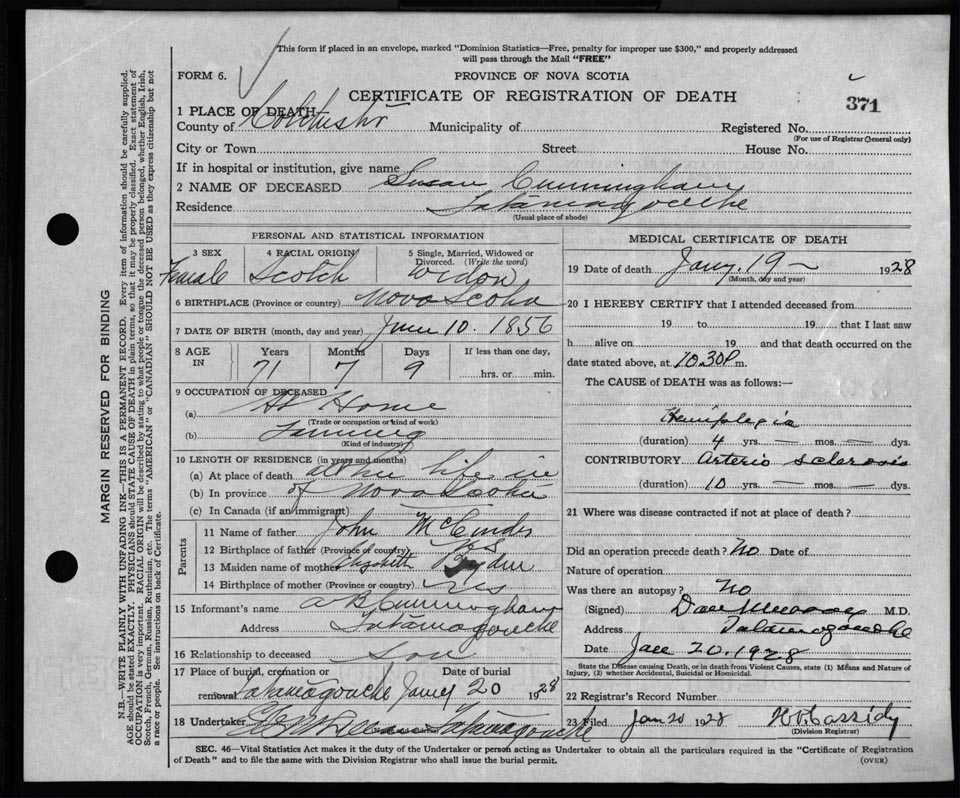 This form if placed in an envelope, marked "Dominion Statistics—Free, penalty for improper use $300," and properly addressed
will pass through the Mail "FREE"
FORM 6.
PROVINCE OF NOVA SCOTIA
CERTIFICATE OF REGISTRATION OF DEATH
371
1 PLACE OF DEATH
County of Colchester Municipality of Registered No.
(For use of Registrar General only)
City or Town Street House No.
If in hospital or institution, give name
2 NAME OF DECEASED Susan Cunningham
Residence Tatamagouche
(Usual place of abode)
PERSONAL AND STATISTICAL INFORMATION
3 SEX 4 RACIAL ORIGIN 5 Single, Married, Widowed or Divorced. (Write the word)
Female Scotch Widow
6 BIRTHPLACE (Province or country) Nova Scotia
7 DATE OF BIRTH (month, day and year) June 10. 1856
8 AGE IN Years Months Days If less than one day,
71 7 9 hrs. or min.
9 OCCUPATION OF DECEASED
(a) At Home
(Trade or occupation or kind of work)
(b) Farming
(Kind of industry)
10 LENGTH OF RESIDENCE (in years and months)
(a) At place of death all her life in
(b) In province of Nova Scotia
(c) In Canada (if an immigrant)
Parents
11 Name of father John
12 Birthplace of father (Province or country) NS
13 Maiden name of mother Elizabeth
14 Birthplace of mother (Province or country) NS
15 Informant's name A B Cunningham
Address Tatamagouche
16 Relationship to deceased Son
17 Place of burial, cremation or removal Tatamagouche Date of burial Jany 20 1928
18 Undertaker Tatamagouche
MEDICAL CERTIFICATE OF DEATH
19 Date of death Jany. 19 – 1928
(Month, day and year)
20 I HEREBY CERTIFY that I attended deceased from
19 to 19 that I last saw
h alive on 19 and that death occurred on the
date stated above, at 10.30 P m.
The CAUSE of DEATH was as follows:—
Hemiplegia
(duration) 4 yrs. — mos. — dys.
CONTRIBUTORY Arterio sclerosis
(duration) 10 yrs. — mos. — dys.
21 Where was disease contracted if not at place of death?
Did an operation precede death? No Date of
Nature of operation
Was there an autopsy? No
(Signed) Dan Murray M.D.
Address Tatamagouche
Date Jan 20. 1928
State the Disease causing Death, or in death from Violent Causes, state (1) Means and Nature of
Injury, (2) whether Accidental, Suicidal or Homicidal.
22 Registrar's Record Number
23 Filed Jan 20 1928 Cassidy
(Division Registrar)
SEC. 46—Vital Statistics Act makes it the duty of the Undertaker or person acting as Undertaker to obtain all the particulars required in the "Certificate of Registration
of Death" and to file the same with the Division Registrar who shall issue the burial permit.
(OVER)
MARGIN RESERVED FOR BINDING
N.B.—WRITE PLAINLY WITH UNFADING INK—THIS IS A PERMANENT RECORD. Every item of information should be carefully supplied.
AGE should be stated EXACTLY. PHYSICIANS should STATE CAUSE OF DEATH in plain terms, so that it may be properly classified. Exact statement of
OCCUPATION is very important. RACIAL ORIGIN will be described by stating to what people or tongue the deceased person belonged, whether English, Irish,
Scotch, French, German, Russian, Ruthenian, etc. The terms "AMERICAN" or "CANADIAN" SHOULD NOT BE USED as they express citizenship but not
a race or people. See instructions on back of Certificate.